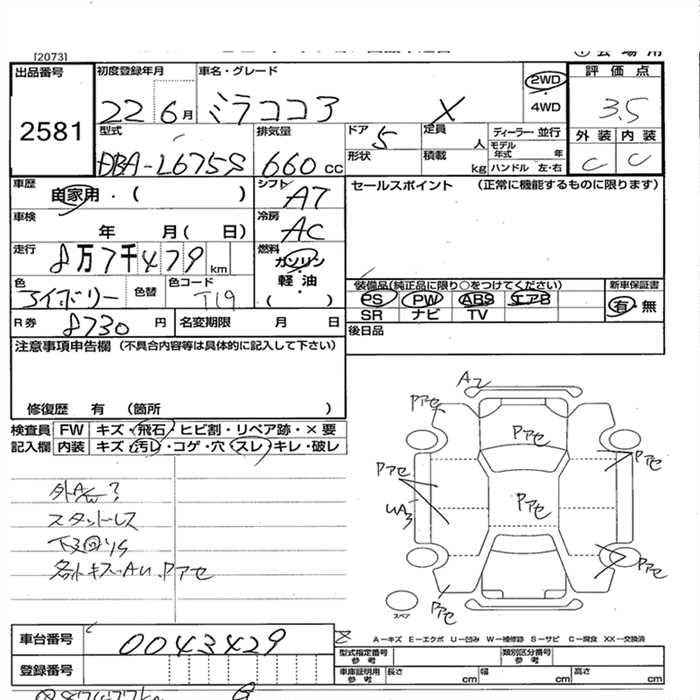 [2073]
出品番号 初度登録年月 車名・グレード 2WD 4WD 評価点
2581 22 6月 ミラココア X 3.5
型式 排気量 ドア 定員 ディーラー・並行 外装 内装
DBA-L675S 660cc 5 人 モデル年式 年 C C
形状 積載 kg ハンドル 左・右
車歴 自家用・( ) シフト AT セールスポイント (正常に機能するものに限ります)
車検 年 月( 日) 冷房 AC
走行 8万7千479km 燃料 ガソリン・軽油 ( )
色 アイボリー 色替 色コード T19
装備品(純正品に限り○をつけてください) 新車保証書
PS PW ABS エアB 有・無
SR ナビ TV
R券 8730円 名変期限 月 日 後日品
注意事項申告欄 (不具合内容等は具体的に記入して下さい)
修復歴 有 (箇所 )
検査員 FW キズ・飛石・ヒビ割・リペア跡・×要
記入欄 内装 キズ・汚レ・コゲ・穴・スレ・キレ・破レ
A2
Pアセ
Pアセ
Pアセ
Pアセ
Pアセ
UA3
Pアセ
Pアセ
スペア
外A/W?
スタットレス
下廻りS
各トキズ・AU.Pアセ
車台番号 0043429
A−キズ E−エクボ U−凹み W−補修跡 S−サビ C−腐食 XX−交換済
登録番号
型式指定番号 参考 類別区分番号 参考
車庫証明用 参考 長さ cm 幅 cm 高さ cm